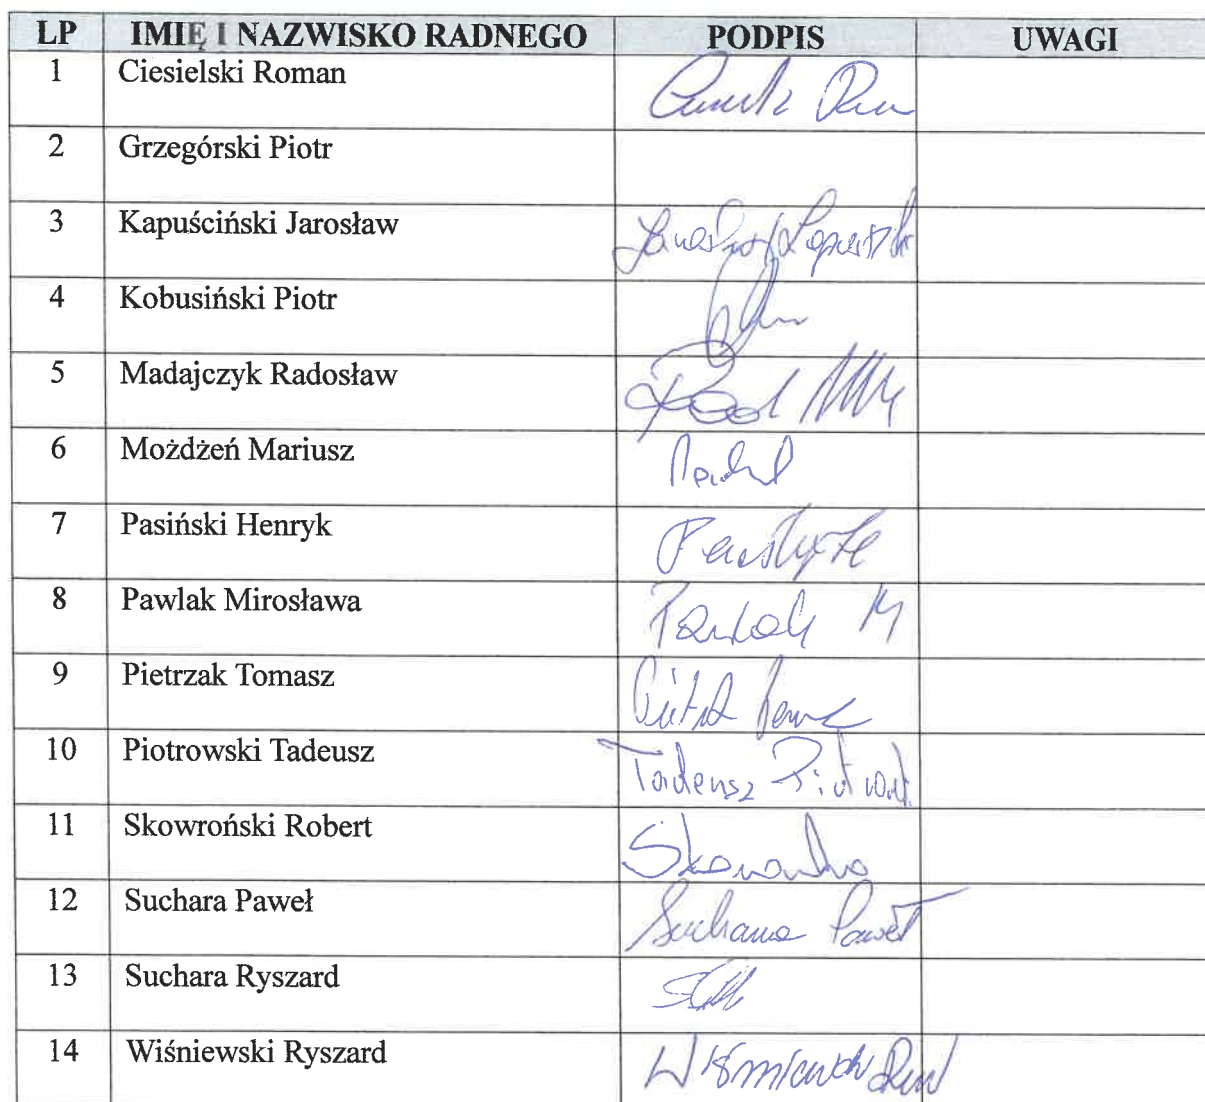 LP IMIĘ I NAZWISKO RADNEGO PODPIS UWAGI
1 Ciesielski Roman
2 Grzegórski Piotr
3 Kapuściński Jarosław
4 Kobusiński Piotr
5 Madajczyk Radosław
6 Możdżeń Mariusz
7 Pasiński Henryk
8 Pawlak Mirosława Pawlak M
9 Pietrzak Tomasz
10 Piotrowski Tadeusz Tadeusz
11 Skowroński Robert
12 Suchara Paweł Suchara Paweł
13 Suchara Ryszard
14 Wiśniewski Ryszard